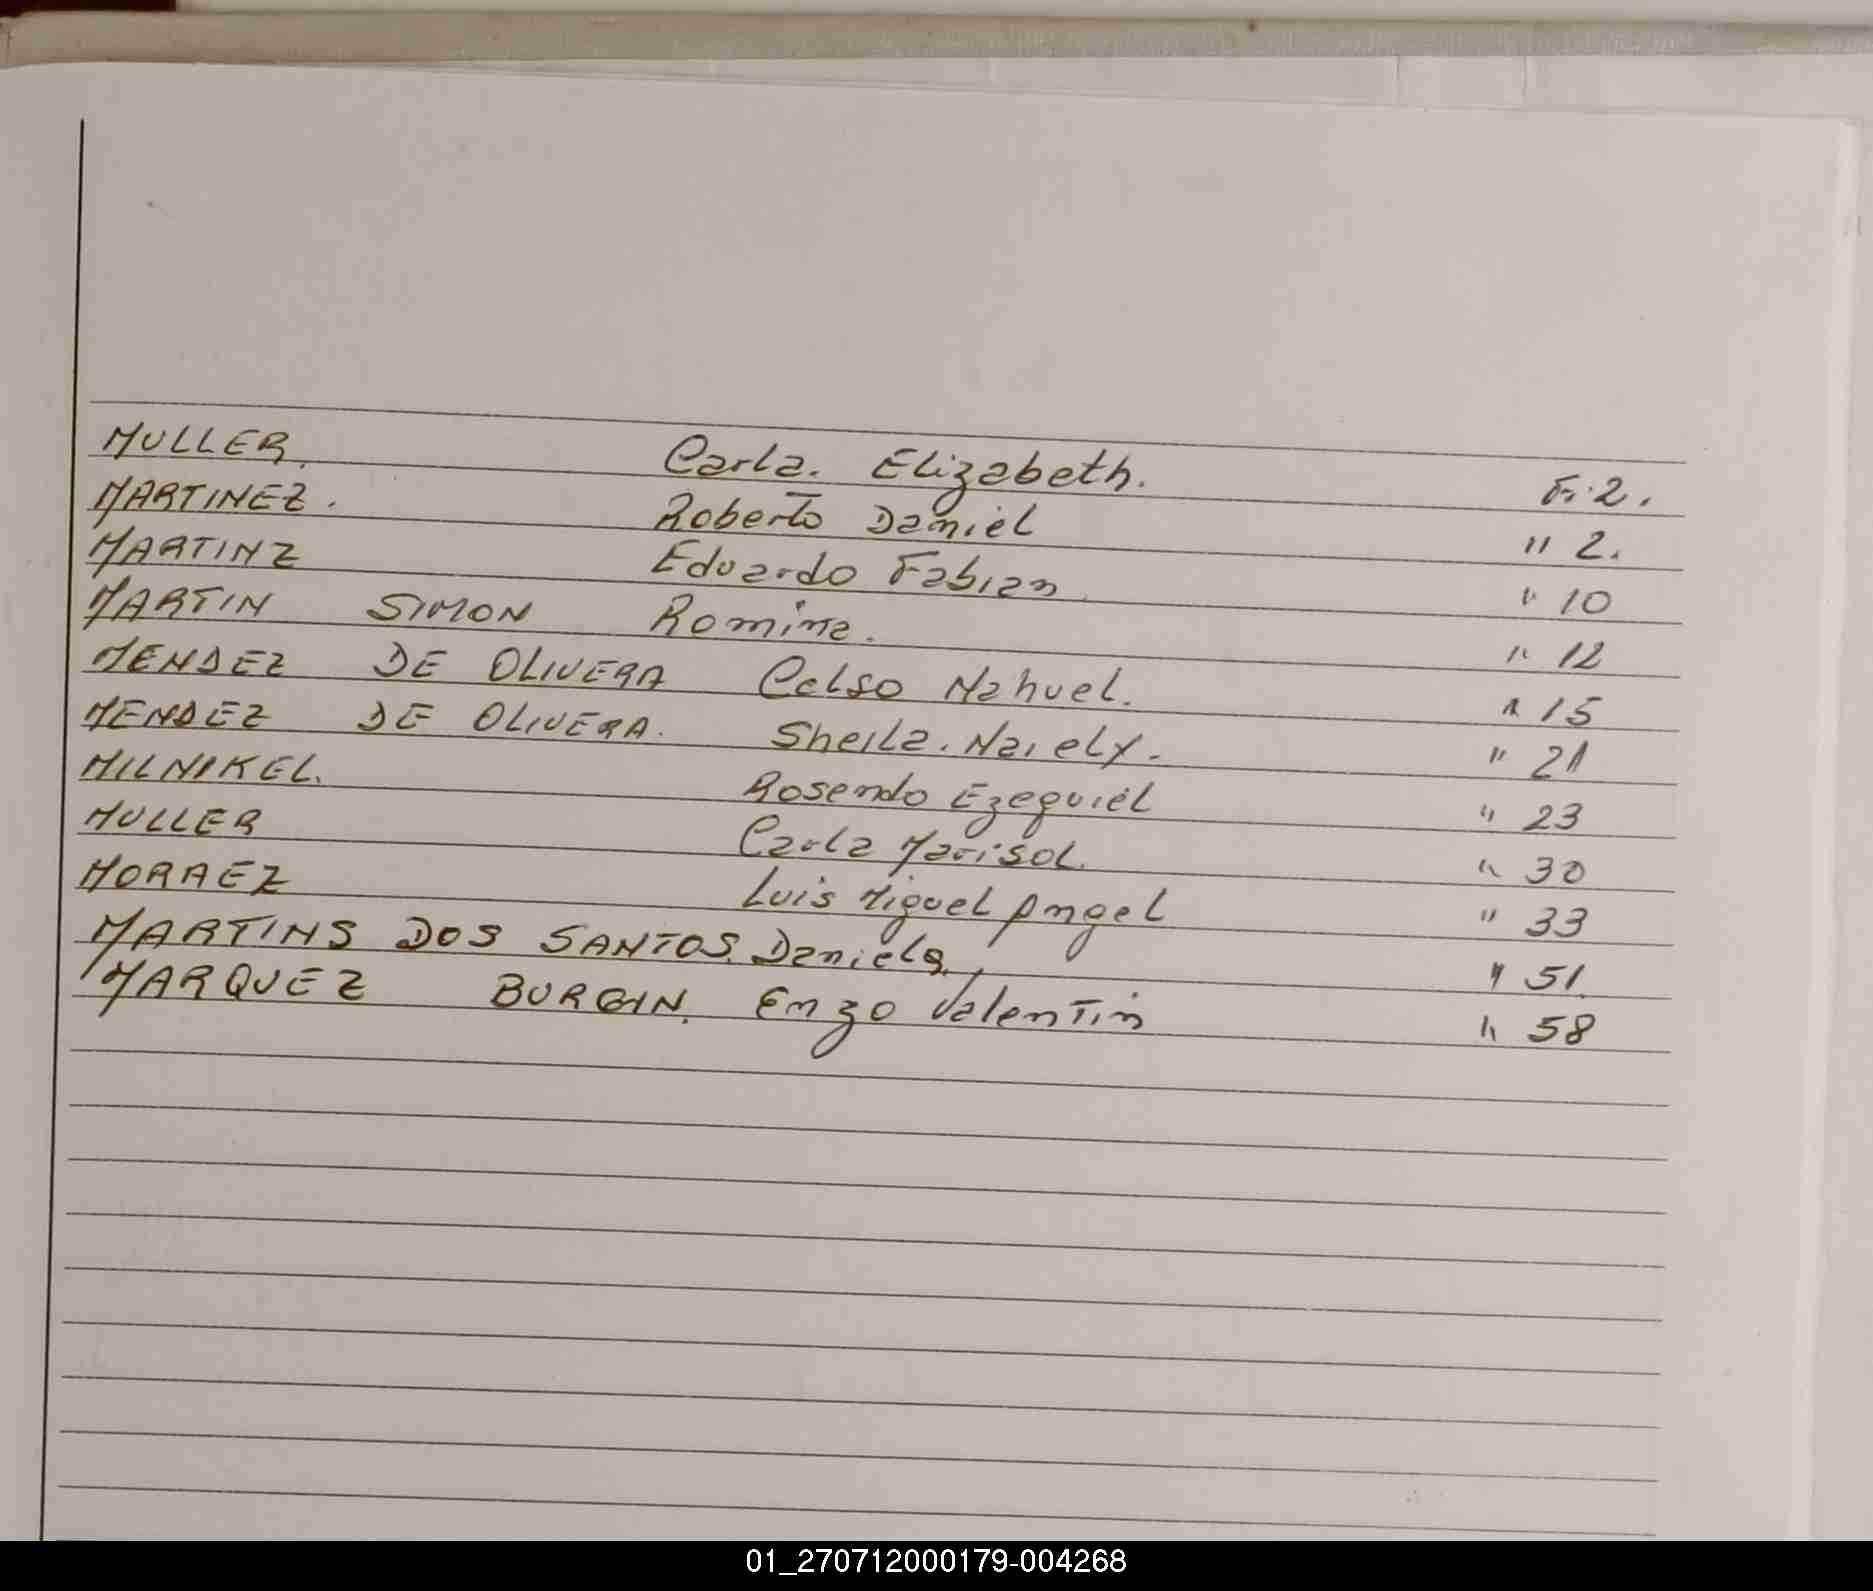 MULLER. Carla. Elizabeth. Fr. 2.
MARTINEZ. Roberto Daniel " 2.
MARTINZ Eduardo Fabian " 10
MARTIN SIMON Romina. " 12
MENDEZ DE OLIVERA Celso Nahuel. " 15
MENDEZ DE OLIVERA. Sheila. Naiely. " 21
MILNIKEL. Rosendo Ezequiel " 23
MULLER Carla Marisol. " 30
MORAEZ Luis Miguel Angel " 33
MARTINS DOS SANTOS. Daniela. " 51.
MARQUEZ BURGIN. Enzo Valentin " 58
01_270712000179-004268